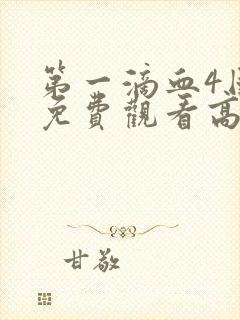 第一滴血4
免費觀看高
甘敬